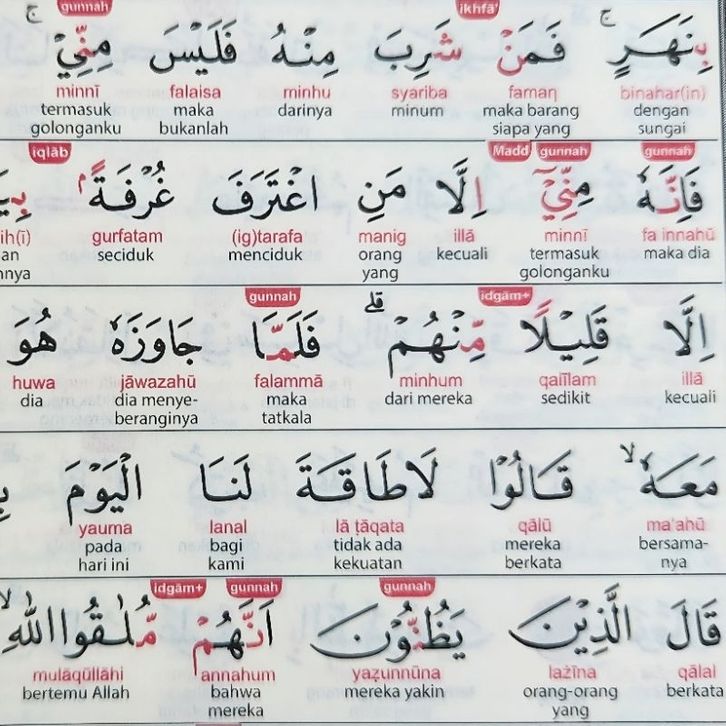 ikhfā' gunnah
بِنَهَرٍۚ فَمَنْ شَرِبَ مِنْهُ فَلَيْسَ مِنِّيْۚ
binahar(in) famaŋ syariba minhu falaisa minnī
dengan maka barang minum darinya maka termasuk
sungai siapa yang bukanlah golonganku
gunnah gunnah Madd iqlāb
فَاِنَّهٗ مِنِّيْٓ اِلَّا مَنِ اغْتَرَفَ غُرْفَةً ۢ بِيَ
fa innahū minnī illā manig (ig)tarafa gurfatam ih(ī)
maka dia termasuk kecuali orang menciduk seciduk an
golonganku yang nnya
idgām+ gunnah
اِلَّا قَلِيْلًا مِّنْهُمْ ۗ فَلَمَّا جَاوَزَهٗ هُوَ
illā qalīlam minhum falammā jāwazahū huwa
kecuali sedikit dari mereka maka dia menye- dia
tatkala beranginya
مَعَهٗۙ قَالُوْا لَا طَاقَةَ لَنَا الْيَوْمَ بِ
ma'ahū qālū lā ṭāqata lanal yauma
bersama- mereka tidak ada bagi pada
nya berkata kekuatan kami hari ini
gunnah gunnah idgām+
قَالَ الَّذِيْنَ يَظُنُّوْنَ اَنَّهُمْ مُّلٰقُوا اللّٰهِۙ
qālal lażīna yaẓunnūna annahum mulāqūllāhi
berkata orang-orang mereka yakin bahwa bertemu Allah
yang mereka